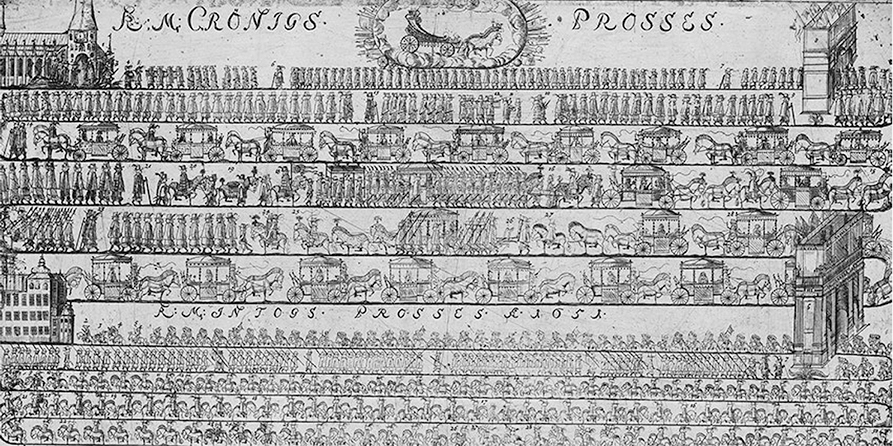 K: M: CRÖNIGS. PROSSES.
K: M: INTOGS. PROSSES. A. 1651.